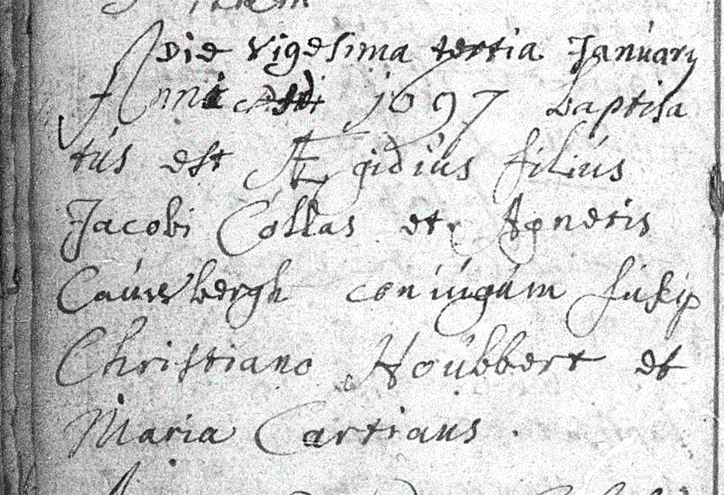 Die vigesima tertia January
Anni 1697 baptisa
tús est Ægidiús filiús
Jacobi Collas et Agnetis
Caúwbergh coniúgúm súscip
Christiano Hoúbbert et
Maria Cartiaus .